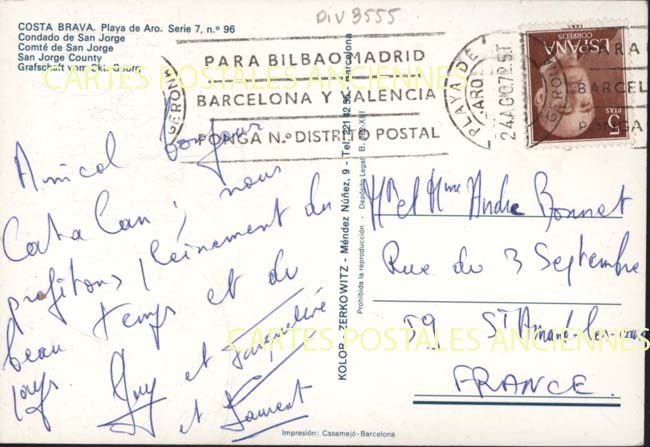 DIV 3555
COSTA BRAVA. Playa de Aro. Serie 7, n.º 96
Condado de San Jorge
Comté de San Jorge
San Jorge County
Grafschaft von Skt. Georg
GERONA
PARA BILBAO MADRID
BARCELONA Y VALENCIA
PONGA N.º DISTRITO POSTAL
PLAYA DE ARO
24 AGO
GERONA
ESPAÑA
CORREOS
5 PTAS
PARA
BARCEL
PONGA
CARTES POSTALES ANCIENNES
Amical bonjour
Catalan ; nous
profitons pleinement du
beau temps et du
pays. Guy et Jacqueline
et Laurent
KOLOR - ZERKOWITZ - Méndez Núñez, 9 - Tel. 221 42 96 - Barcelona
Prohibida la reproducción - Depósito Legal B.
Mr et Mme André Bonnet
Rue du 3 Septembre
59 St Amand-les-eaux
FRANCE.
CARTES POSTALES ANCIENNES
Impresión: Casamajó-Barcelona